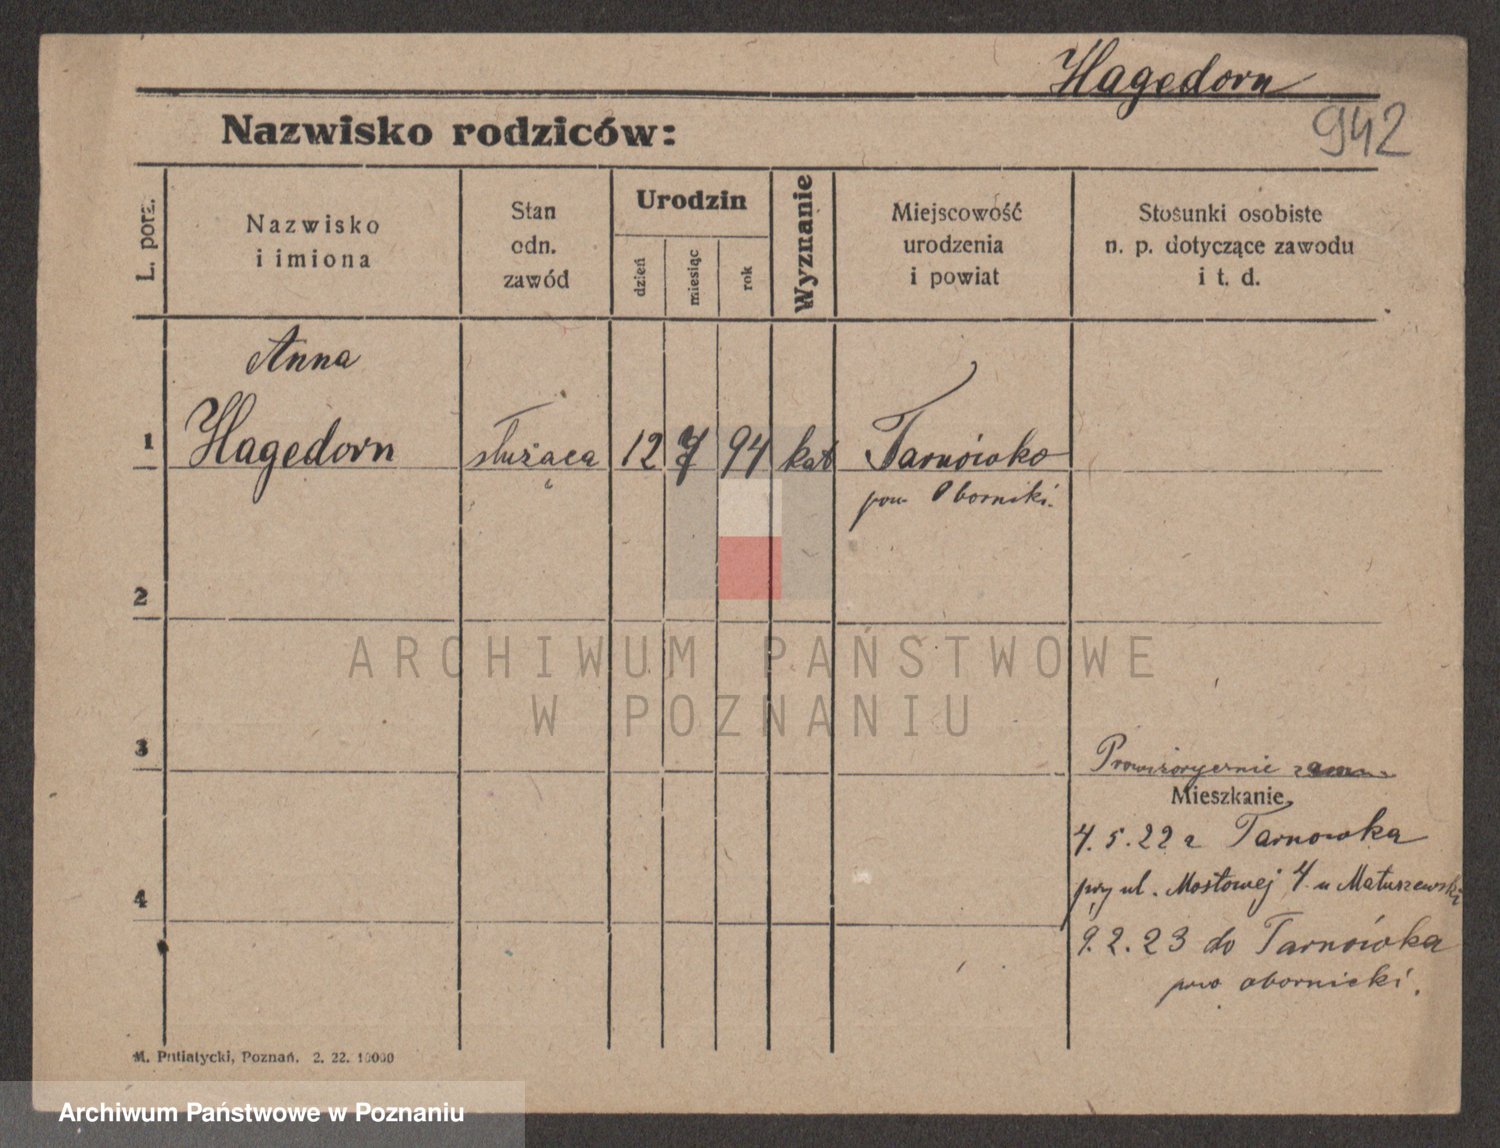 Hagedorn
942
Nazwisko rodziców:
L. porz.
Nazwisko
i imiona
Stan
odn.
zawód
Urodzin
dzień
miesiąc
rok
Wyznanie
Miejscowość
urodzenia
i powiat
Stosunki osobiste
n. p. dotyczące zawodu
i t. d.
Anna
1 Hagedorn służąca 12 7 94 kat Tarnówko
pow Oborniki.
2
ARCHIWUM PAŃSTWOWE
W POZNANIU
3
Prowizorycznie
Mieszkanie
4. 5. 22 z Tarnowka
4
przy ul. Mostowej 4 u Matuszewski
9. 2. 23 do Tarnówka
pow obornicki.
M. Putiatycki, Poznań. 2. 22. 10000
Archiwum Państwowe w Poznaniu